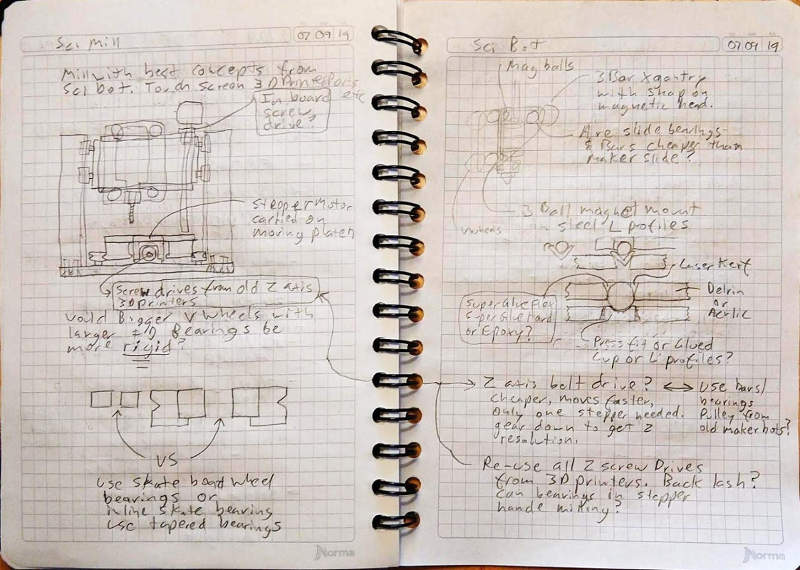 Sci Mill
07 09 19
Mill with best concepts from
Sci bot. Touch screen 3D Printer Parts etc
In board
screw
drive?
Stepper Motor
carried on
moving platen
Screw drives from old Z axis
3D printers
Would Bigger V Wheels with
larger ID Bearings be
more rigid?
VS
use skate board wheel
bearings or
inline skate bearing
use tapered bearings
Norma
Sci Bot
07 09 19
Mag balls
3 Bar X gantry
with snap on
magnetic head.
Are slide bearings
& Bars cheaper than
maker slide?
Vwheels
3 Ball magnet mount
in steel L profiles
Laser Kerf
Super Glue Flex
Super Glue Hard
or Epoxy?
Delrin
or
Acrylic
Press fit or Glued
Cup or L profiles?
Z axis belt drive?
cheaper, moves faster,
only one stepper needed.
gear down to get Z
resolution.
use bars/
bearings
Pulley from
old makerbots?
Re-use all Z screw Drives
from 3D printers. Back lash?
Can bearings in stepper
handle milling?
Norma